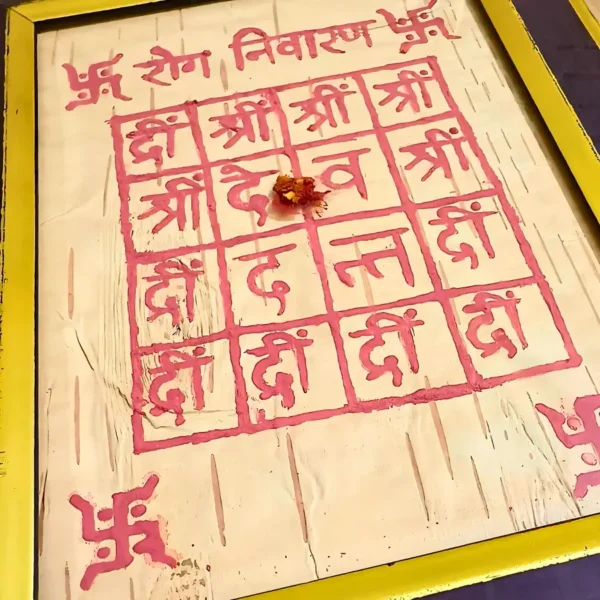 रोग निवारण
द्रीं श्रीं श्रीं श्रीं
श्रीं दे व श्रीं
द्रीं द त्त द्रीं
द्रीं द्रीं द्रीं द्रीं